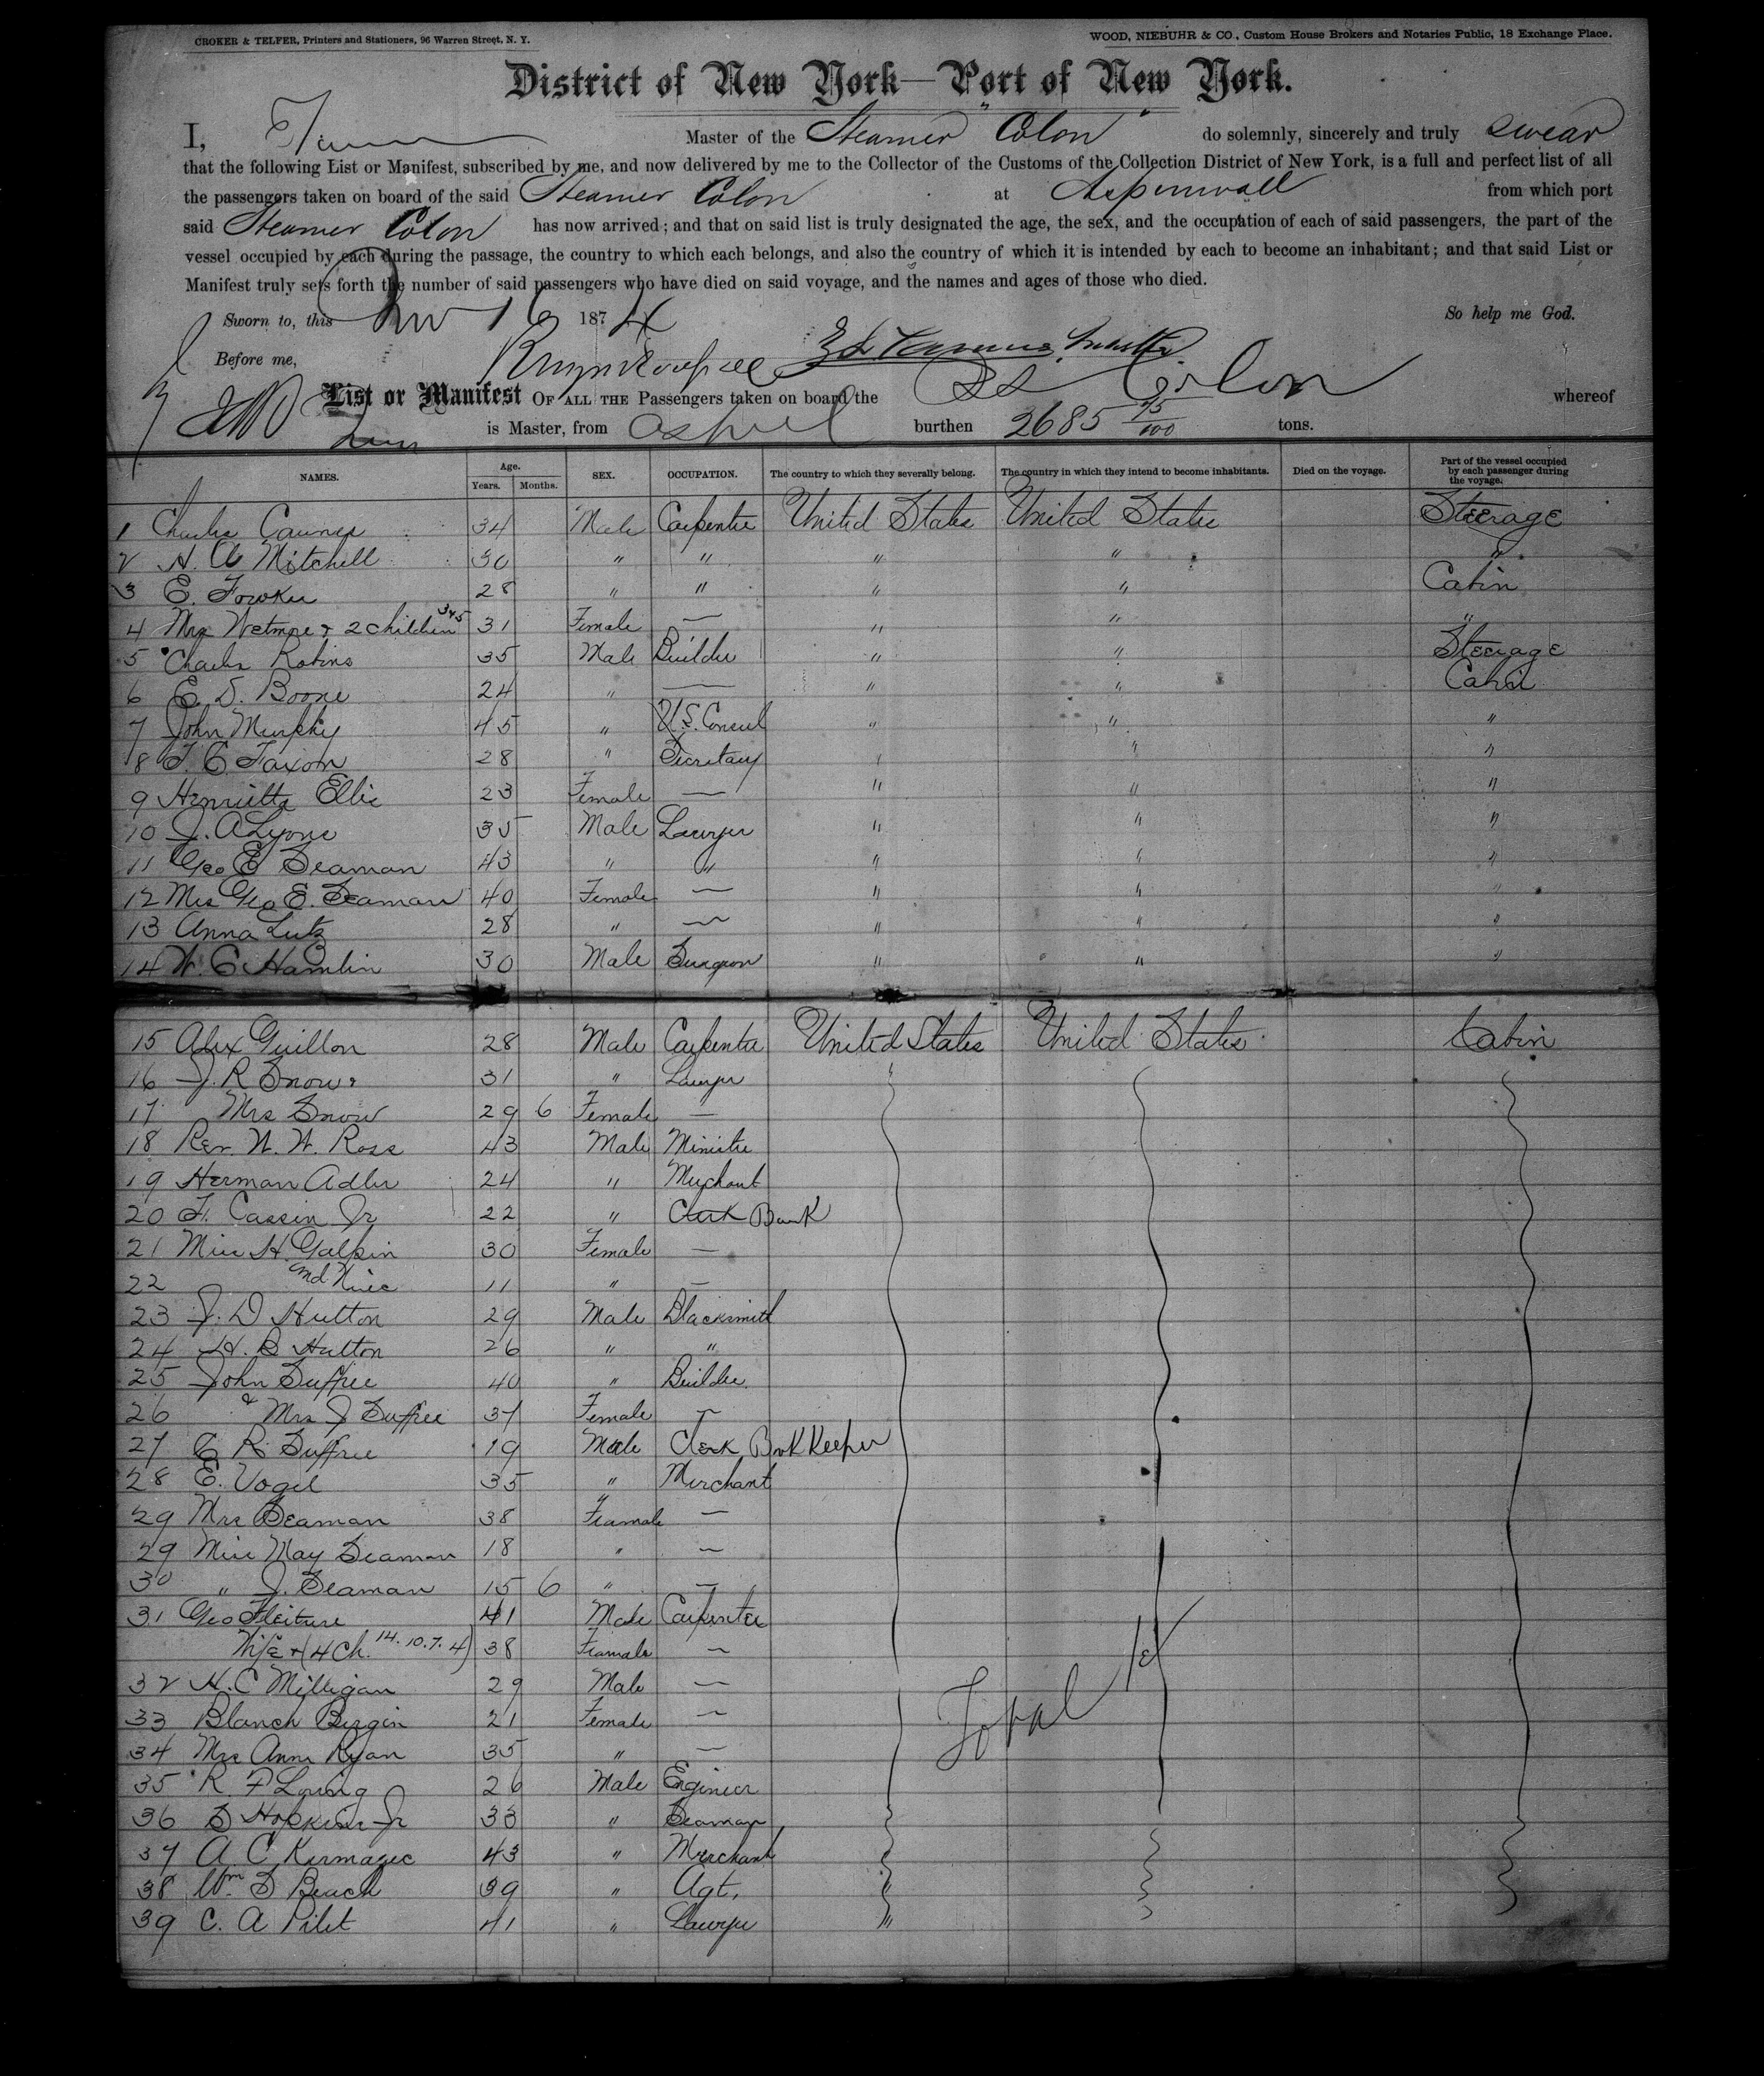 CROKER & TELFER, Printers and Stationers, 96 Warren Street, N. Y. WOOD, NIEBUHR & CO., Custom House Brokers and Notaries Public, 18 Exchange Place.
District of New York—Port of New York.
I, Master of the Steamer "Colon" do solemnly, sincerely and truly swear
that the following List or Manifest, subscribed by me, and now delivered by me to the Collector of the Customs of the Collection District of New York, is a full and perfect list of all
the passengers taken on board of the said Steamer Colon at Aspinwall from which port
said Steamer Colon has now arrived; and that on said list is truly designated the age, the sex, and the occupation of each of said passengers, the part of the
vessel occupied by each during the passage, the country to which each belongs, and also the country of which it is intended by each to become an inhabitant; and that said List or
Manifest truly sets forth the number of said passengers who have died on said voyage, and the names and ages of those who died.
Sworn to, this 16 1874 So help me God.
Before me,
List or Manifest OF ALL THE Passengers taken on board the SS Colon whereof
is Master, from burthen 2685 95/100 tons.
NAMES. Age. Years. Months. SEX. OCCUPATION. The country to which they severally belong. The country in which they intend to become inhabitants. Died on the voyage. Part of the vessel occupied by each passenger during the voyage.
1 Charles 34 Male Carpenter United States United States Steerage
2 Mitchell 30 " " " " "
3 E. Fowker 28 " " " " Cabin
4 Mrs Wetmore + 2 children 3 & 5 31 Female — " " "
5 Charles Robins 35 Male Builder " " Steerage
6 E. D. Boone 24 " — " " Cabin
7 John Murphy 45 " U.S. Consul " " "
8 F. C. Faxon 28 " Secretary " " "
9 Henrietta Ellis 23 Female — " " "
10 J. A Lyons 35 Male Lawyer " " "
11 Geo E Seaman 43 " " " " "
12 Mrs Geo E. Seaman 40 Female — " " "
13 Anna Lutz 28 " — " " "
14 W. C. Hamlin 30 Male Surgeon " " "
15 Alex Guillon 28 Male Carpenter United States United States Cabin
16 J. R Snow 31 " Lawyer
17 Mrs Snow 29 6 Female —
18 Rev. W. W. Ross 43 Male Ministre
19 Herman Adler 24 " Merchant
20 F. Cassin Jr 22 " Clerk Bank
21 Miss H. Galpin 30 Female —
22 and Niece 11 " —
23 J. D Hutton 29 Male Blacksmith
24 H. B Hutton 26 " "
25 John Suffree 40 " Builder
26 & Mrs J Suffree 37 Female —
27 C R Suffree 19 Male Clerk BookKeeper
28 E. Vogel 35 " Merchant
29 Mrs Seaman 38 Feamale —
29 Miss May Seaman 18 " —
30 " J. Seaman 15 6 " —
31 Geo 41 Male Carpenter
Wife + (4 Ch. 14. 10. 7. 4) 38 Feamale —
32 H. C Milligan 29 Male —
33 Blanch Bergin 21 Female —
34 Mrs Anna Ryan 35 " —
35 R F Loring 26 Male Engineer
36 S Hopkins Jr 33 " Seaman
37 A C Kermagec 43 " Merchant
38 Wm S Beach 39 " Agt.
39 C. A Pilet 41 " Lawyer "
Total